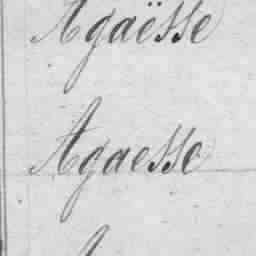 Agaësse
Agaesse